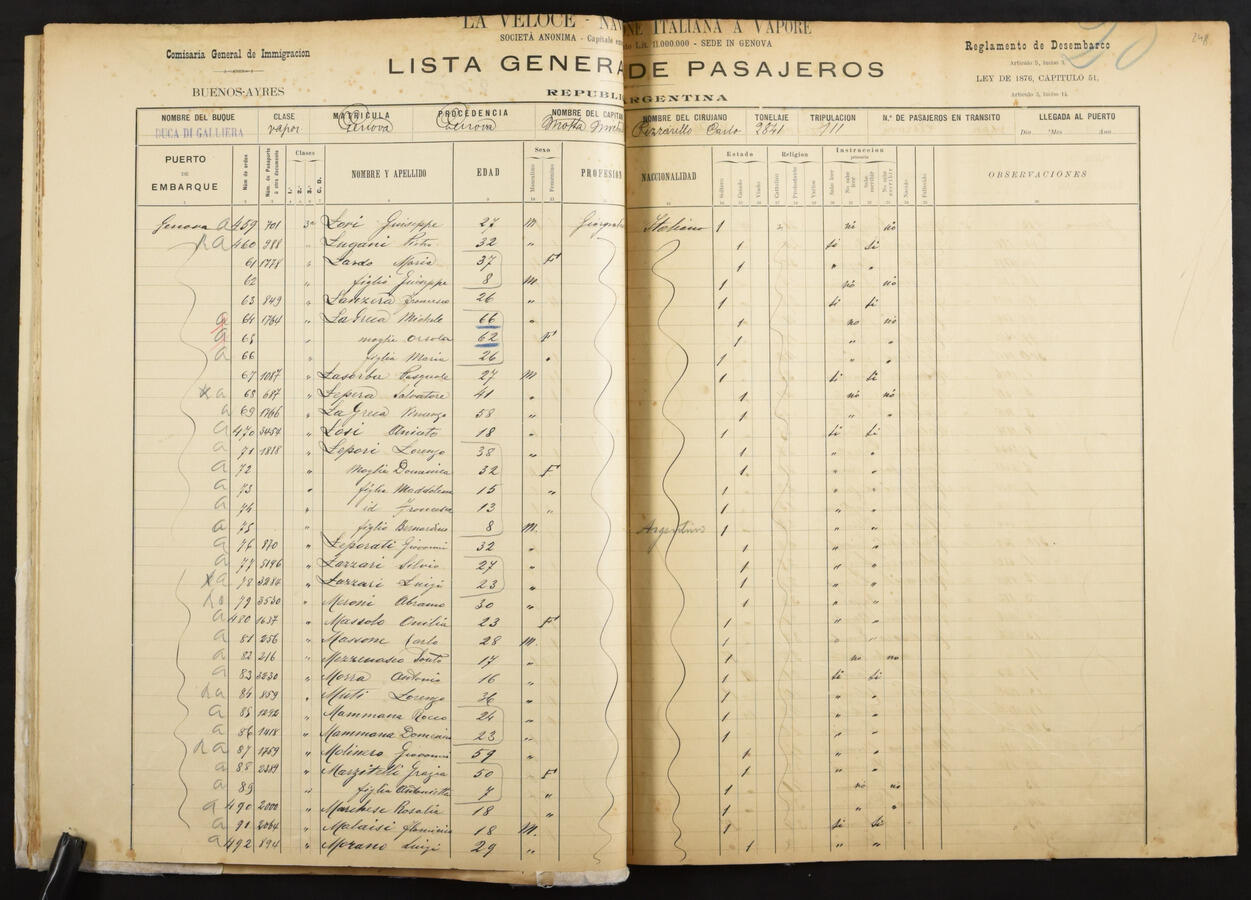 LA VELOCE - NAV NE ITALIANA A VAPORE
SOCIETÀ ANONIMA - Capitale Lit. 11.000.000 - SEDE IN GENOVA
Comisaria General de Immigracion
BUENOS-AYRES
LISTA GENERA DE PASAJEROS
REPUBLI ARGENTINA
Reglamento de Desembarco
Articulo 5, Inciso
LEY DE 1876, CAPITULO 51,
Articulo 3, Inciso 14.
20
248
NOMBRE DEL BUQUE CLASE MATRICULA PROCEDENCIA NOMBRE DEL CAPIT NOMBRE DEL CIRUJANO TONELAJE TRIPULACION N.º DE PASAJEROS EN TRANSITO LLEGADA AL PUERTO
DUCA DI GALLIERA vapor Genova Genova Motta Pizzarello Carlo 2841 111 Dia Mes Ano
PUERTO DE EMBARQUE Núm de orden Núm. de Pasaporte ú otro documento Clases 1.ª 2.ª 3.ª C. D. NOMBRE Y APELLIDO EDAD Sexo Masculino Femenino PROFESION NACCIONALIDAD Estado Soltero Casado Viudo Religion Cattolico Protestante Varios Instruccion primaria Sabe leer No sabe leer Sabe escribir No sabe escribir Nacido Fallecido OBSERVACIONES
Genova a 459 701 3ª Lovi Giuseppe 27 M Italiano 1 nò nò
a 460 988 " Lugani Pietro 32 " 1 si si
61 1778 " Lardo Maria 37 F 1 " "
62 " figlio Giuseppe 8 M 1 nò nò
63 849 " Lanzera Francesco 26 " 1 si si
a 64 1764 " La Greca Michele 66 " 1 no nò
a 65 moglie Orsola 62 F 1 " "
a 66 " figlia Maria 26 " 1 " "
67 1087 " Lasorba Pasquale 27 M 1 si si
x a 68 687 " Lepera Salvatore 41 " 1 nò nò
a 69 1766 " La Greca Vincenzo 58 " 1 " "
a 470 3454 " Losi Aniceto 18 " 1 si si
a 71 1818 " Lepori Lorenzo 38 " 1 " "
a 72 " moglie Domenica 32 F 1 " "
a 73 " figlia Maddalena 15 " 1 " "
a 74 id Francesca 13 " 1 " "
a 75 " figlio Bernardino 8 M. Argentino 1 " "
a 76 870 " Leporati Giovanni 32 " 1 " "
a 77 5196 " Lazzari Silvio 27 " 1 " "
x a 78 3284 " Lazzari Luigi 23 " 1 " "
79 3530 " Meroni Abramo 30 " 1 " "
a 480 1637 " Massolo Emilia 23 F 1 " "
a 81 256 " Massone Carlo 28 M. 1 " "
a 82 216 " Mezzenasco 17 " 1 no no
a 83 3230 " Morra Antonio 16 " 1 si si
a 84 859 " Lorenzo 36 " 1 " "
a 85 1292 " Mammana Rocco 24 " 1 " "
a 86 1418 " Mammana Domenico 23 " 1 " "
a 87 1759 " Molinero Giovanni 59 " 1 " "
a 88 2389 " Marzitelli Grazia 50 F 1 " "
a 89 " figlia Antonietta 7 " 1 nò nò
a 490 2000 " Marchese Rosalia 18 " 1 " "
a 91 2064 " Malaisi Flaminio 18 M. 1 si si
a 492 894 " Morano Luigi 29 " 1 " "